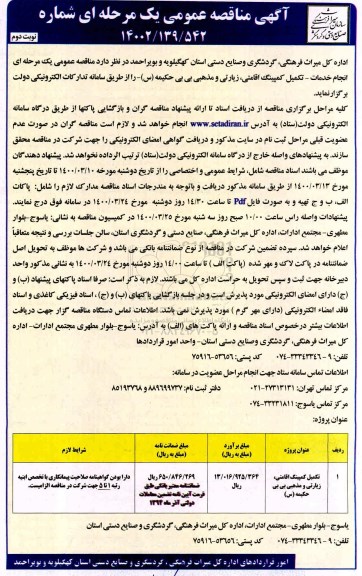 آگهی مناقصه عمومی یک مرحله ای شماره
۱۴۰۰۲/۱۳۹/۵۴۲
نوبت دوم
اداره کل میراث فرهنگی، گردشگری وصنایع دستی استان کهگیلویه و بویراحمد در نظر دارد مناقصه عمومی یک مرحله ای
انجام خدمات - تکمیل کمپینگ اقامتی، زیارتی و مذهبی بی بی حکیمه (س)- را از طریق سامانه تدارکات الکترونیکی دولت
برگزار نماید.
کلیه مراحل برگزاری مناقصه از دریافت اسناد تا ارائه پیشنهاد مناقصه گران و بازگشایی پاکتها از طریق درگاه سامانه
الکترونیکی دولت(ستاد) به آدرس www.setadiran.ir انجام خواهد شد و لازم است مناقصه گران در صورت عدم
عضویت قبلی مراحل ثبت نام در سایت مذکور و دریافت گواهی امضای الکترونیکی را جهت شرکت در مناقصه محقق
سازند. به پیشنهادهای واصله خارج از درگاه سامانه الکترونیکی دولت(ستاد) ترتیب اثر داده نخواهد شد. پیشنهاد دهندگان
موظف می باشند اسناد مناقصه شامل، شرایط عمومی و اختصاصی را از تاریخ دوشنبه مورخه ۱۴۰۰/۰۳/۱۰ تا تاریخ پنجشنبه
مورخ ۱۴۰۰/۰۳/۱۳ از طریق سامانه مذکور دریافت و باتوجه به مندرجات اسناد مناقصه مدارک لازم را شامل: پاکات
الف، ب و ج تهیه و به صورت فایل Pdf تا ساعت ۱۴/۳۰ روز دوشنبه مورخ ۱۴۰۰/۰۳/۲۴ در سامانه فوق درج نمایند.
پیشنهادات واصله راس ساعت ۱۰/۰۰ صبح روز سه شنبه مورخ ۱۴۰۰/۰۳/۲۵ در کمیسیون مناقصه به نشانی: یاسوج-بلوار
مطهری- مجتمع ادارات، اداره کل میراث فرهنگی، صنایع دستی و گردشگری استان، سالن جلسات بررسی و نتیجه متعاقباً
اعلام خواهد شد. سپرده تضمین شرکت در مناقصه از نوع ضمانتنامه بانکی می باشد و شرکت ها موظف به تحویل اصل
ضمانتنامه در پاکت لاک و مهر شده (پاکت الف) تا ساعت ۱۴/۰۰ روز دوشنبه مورخ ۱۴۰۰/۰۳/۲۴ به نشانی مذکور واحد
دبیرخانه جهت ثبت و سپس تحویل به حراست اداره کل می باشند. لازم به ذکر است: صرفا اسناد پاکتهای پیشنهاد (ب) و
(ج) دارای امضای الکترونیکی مورد پذیرش است و در جلسه بازگشایی پاکتهای (ب) و (ج)، اسناد فیزیکی کاغذی و اسناد
فاقد امضاء الکترونیکی (دارای مهر گرم) مورد پذیرش نمی باشد. اطلاعات تماس دستگاه مناقصه گزار جهت دریافت
اطلاعات بیشتر درخصوص اسناد مناقصه و ارائه پاکت های (الف) به آدرس: یاسوج-بلوار مطهری مجتمع ادارات- اداره
کل میراث فرهنگی، گردشگری وصنایع دستی استان- واحد امور قراردادها
تلفن: ۹-۰۷۴-۳۳۳۴۳۳۴۶ کد پستی: ۵۳۶۵۶-۷۵۹۱۶
اطلاعات تماس سامانه ستاد جهت انجام مراحل عضویت در سامانه:
مرکز تماس تهران: ۲۷۳۱۳۱۳۱-۰۲۱ دفتر ثبت نام: ۸۸۹۶۹۷۳۷ و ۸۵۱۹۳۷۶۸
مرکز تماس یاسوج: ۳۳۲۳۱۸۱۱-۰۷۴
عنوان پروژه:
ردیف عنوان پروژه مبلغ برآورد (مبلغ به ریال) مبلغ ضمانت نامه (مبلغ به ریال) شرایط لازم
۱ تکمیل کمپینگ اقامتی، زیارتی و مذهبی بی بی حکیمه (س) ۱۳/۰۱۶/۹۲۵/۳۶۴ ریال ۶۵۰/۸۴۶/۲۶۹ ریال ضمانتنامه معتبر بانکی طبق فرمت آیین نامه تضمین معاملات دولتی آذر ماه ۱۳۹۴ دارا بودن گواهینامه صلاحیت پیمانکاری با تخصص ابنیه رتبه ۱ تا ۵ جهت شرکت در مناقصه الزامیست.
یاسوج- بلوار مطهری- مجتمع ادارات، اداره کل میراث فرهنگی، گردشگری و صنایع دستی استان
تلفن: ۹-۰۷۴-۳۳۳۴۳۳۴۶ کد پستی: ۵۳۶۵۶-۷۵۹۱۶
امور قراردادهای اداره کل میراث فرهنگی، گردشگری و صنایع دستی استان کهگیلویه و بویراحمد